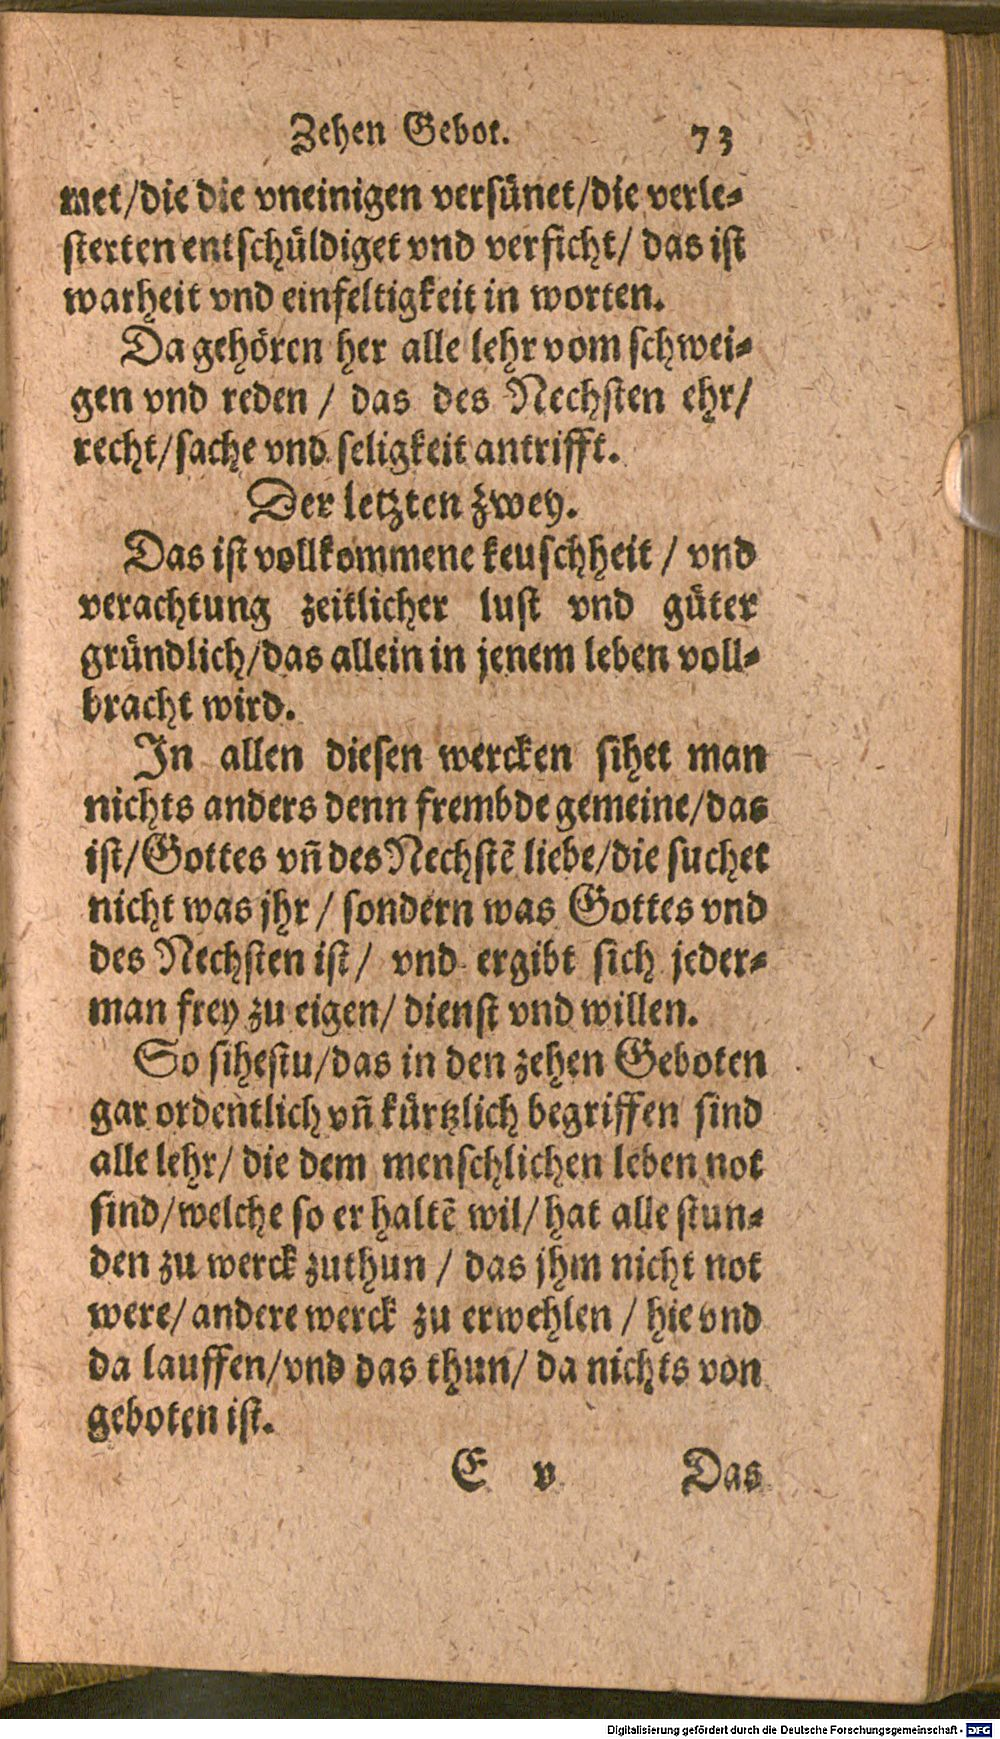 Zehen Gebot. 73
met/die die vneinigen versünet/die verle-
sterten entschüldiget vnd verficht/ das ist
warheit vnd einfeltigkeit in worten.
Da gehören her alle lehr vom schwei-
gen vnd reden / das des Nechsten ehr/
recht/sache vnd seligkeit antrifft.
Der letzten zwey.
Das ist vollkommene keuschheit / vnd
verachtung zeitlicher lust vnd güter
gründlich/das allein in jenem leben voll-
bracht wird.
In allen diesen wercken sihet man
nichts anders denn frembde gemeine/das
ist/Gottes vn̄ des Nechstē liebe/die suchet
nicht was jhr / sondern was Gottes vnd
des Nechsten ist/ vnd ergibt sich jeder-
man frey zu eigen/ dienst vnd willen.
So sihestu/das in den zehen Geboten
gar ordentlich vn̄ kürtzlich begriffen sind
alle lehr/ die dem menschlichen leben not
sind/welche so er haltē wil/ hat alle stun-
den zu werck zuthun / das jhm nicht not
were/ andere werck zu erwehlen / hie vnd
da lauffen/vnd das thun/ da nichts von
geboten ist.
E v Das
Digitalisierung gefördert durch die Deutsche Forschungsgemeinschaft - DFG